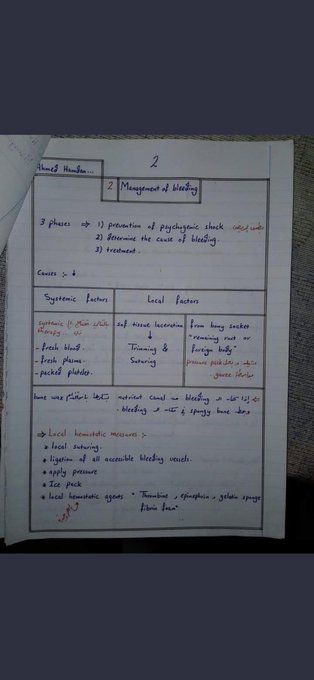 Ahmed Hamdan...
2
2 Management of bleeding
3 phases ⇒ 1) prevention of psychogenic shock
2) determine the cause of bleeding.
3) treatment.
Causes :- ↓
Systemic factors
Local factors
systemic
therapy
- fresh blood.
- fresh plasma.
- packed platelet.
soft tissue laceration
↓
Trimming &
Suturing
from bony socket
"remaining root or
foreign body"
pressure pack
bone wax
nutrient canal
bleeding
bleeding
spongy bone
⇒ Local hemostatic measures :-
* local suturing.
* ligation of all accessible bleeding vessels.
* apply pressure
* Ice pack
* local hemostatic agents " Thrombine, epinephrin, gelatin sponge
fibrin foam"